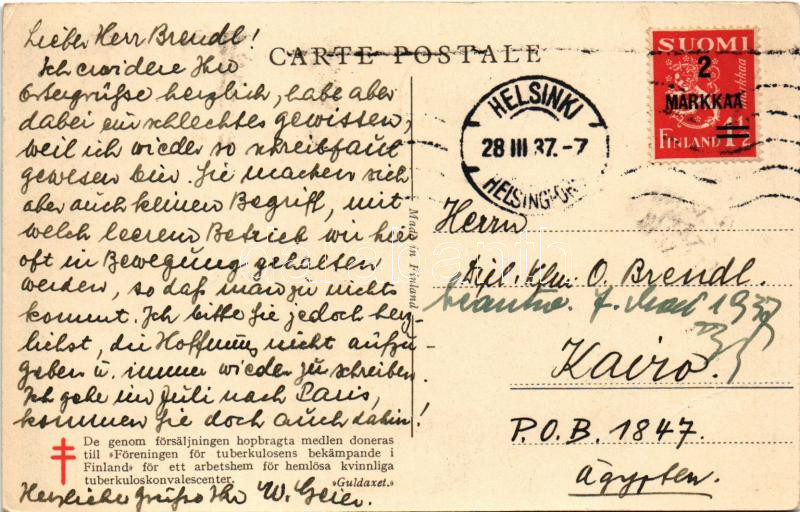 Lieber Herr Brendl!
Ich erwidere Ihre
Ostergrüße herzlich, habe aber
dabei ein schlechtes Gewissen,
weil ich wieder so schreibfaul
gewesen bin. Sie machen sich
aber auch keinen Begriff, mit
welch leerem Betrieb wir hier
oft in Bewegung gehalten
werden, so daß man zu nichts
kommt. Ich bitte Sie jedoch herz-
lichst, die Hoffnung nicht aufzu-
geben u. immer wieder zu schreiben.
Ich gehe im Juli nach Paris,
kommen Sie doch auch dahin!
De genom försäljningen hopbragta medlen doneras
till »Föreningen för tuberkulosens bekämpande i
Finland» för ett arbetshem för hemlösa kvinnliga
tuberkuloskonvalescenter. »Guldaxet.»
Herzliche Grüße Ihr W. Geier.
CARTE POSTALE
Made in Finland
HELSINKI
28 III 37.-7
HELSINGFORS
SUOMI
2
MARKKAA
markkaa
FINLAND 1½
Herrn
Dipl. Kfm. O. Brendl.
7. 1937
Kairo.
P.O.B. 1847.
Ägypten.